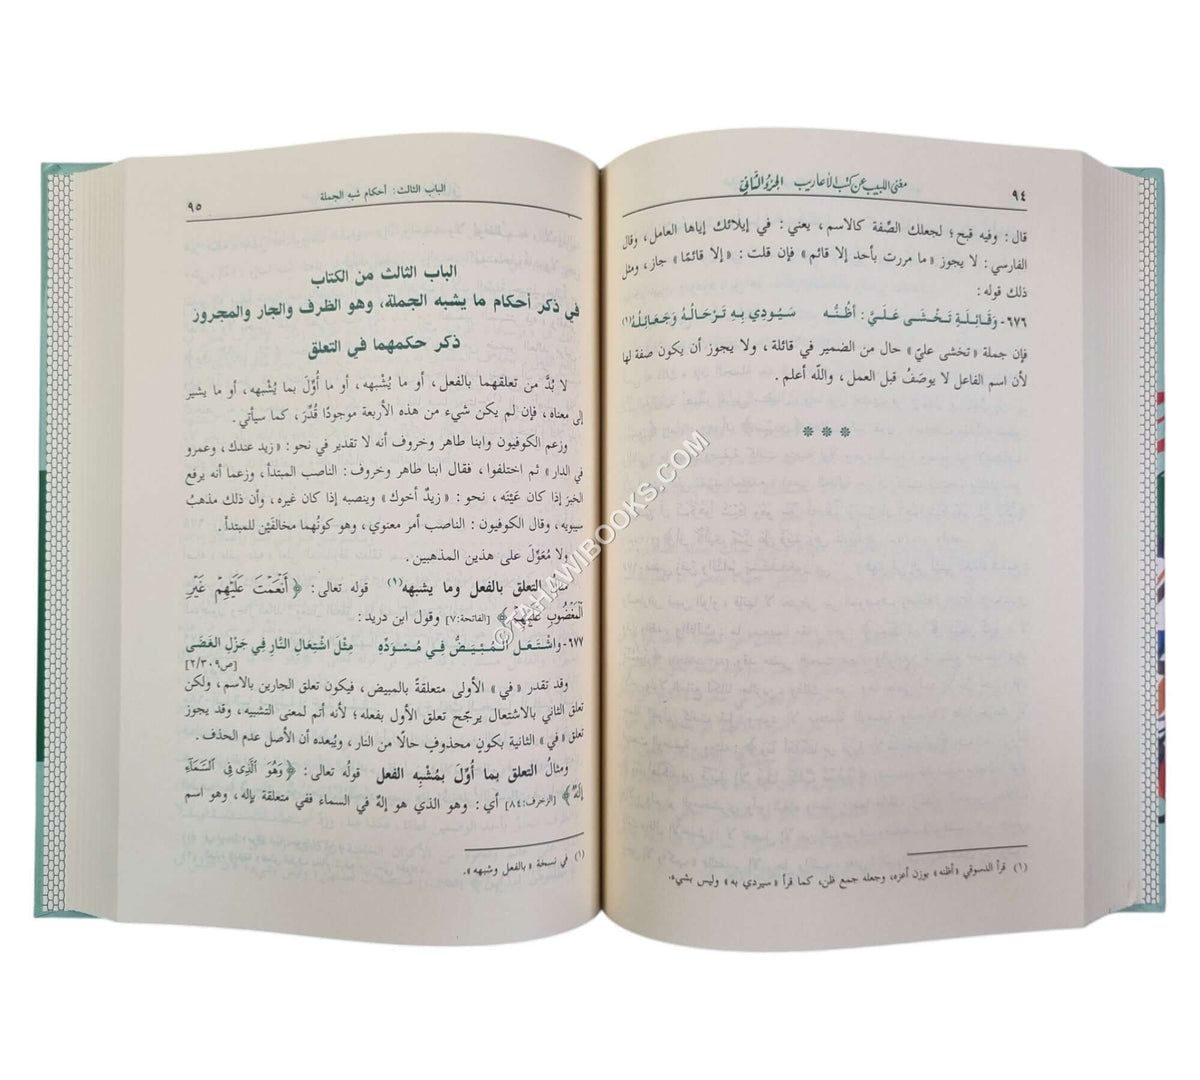 ٩٤ مغني اللبيب عن كتب الأعاريب الجزء الثاني
قال : وفيه قبح ؛ لجعلك الصِّفة كالاسم، يعني : في إيلائك إياها العامل، وقال
الفارسي : لا يجوز « ما مررت بأحد إلا قائم » فإن قلت : « إلا قائمًا » جاز، ومثل
ذلك قوله :
٦٧٦- وَقَائِلَةٍ تَخْشَى عَلَيَّ : أَظُنُّه سَيُودِي بِهِ تَرْحَالُهُ وَجَعَائِلُهْ(١)
فإن جملة « تخشى عليّ » حال من الضمير في قائلة ، ولا يجوز أن يكون صفة لها
لأن اسم الفاعل لا يوصَفُ قبل العمل، والله أعلم .
* * *
(١) قرأ الدسوقي « أظنه » بوزن أعزه، وجعله جمع ظن، كما قرأ « سيردي به » وليس بشيء.
الباب الثالث: أحكام شبه الجملة ٩٥
الباب الثالث من الكتاب
في ذكر أحكام ما يشبه الجملة، وهو الظرف والجار والمجرور
ذكر حكمهما في التعلق
لا بُدَّ من تعلقهما بالفعل، أو ما يُشْبهه، أو ما أُوِّلَ بما يُشْبهه، أو ما يشير
إلى معناه، فإن لم يكن شيء من هذه الأربعة موجودًا قُدِّرَ، كما سيأتي.
وزعم الكوفيون وابنا طاهر وخروف أنه لا تقدير في نحو : « زيد عندك، وعمرو
في الدار » ثم اختلفوا، فقال ابنا طاهر وخروف : الناصب المبتدأ، وزعما أنه يرفع
الخبرَ إذا كان عَيْنَه، نحو : « زيدٌ أخوك » وينصبه إذا كان غيره، وأن ذلك مذهبُ
سيبويه، وقال الكوفيون : الناصب أمر معنوي، وهو كونُهما مخالفَيْن للمبتدأ.
ولا مُعَوَّلَ على هذين المذهبين.
مثالُ التعلق بالفعل وما يشبهه(١) قوله تعالى : ﴿ أَنْعَمْتَ عَلَيْهِمْ غَيْرِ
الْمَغْضُوبِ عَلَيْهِمْ ﴾ [الفاتحة:٧] وقول ابن دريد :
٦٧٧- وَاشْتَعَلَ الْمُبْيَضُّ فِي مُسْوَدِّهِ مِثْلَ اشْتِعَالِ النَّارِ فِي جَزْلِ الْغَضَى
[ص٢/٣٠٩]
وقد تقدر « في » الأولى متعلقةً بالمبيض، فيكون تعلق الجارين بالاسم، ولكن
تعلق الثاني بالاشتعال يرجّح تعلق الأول بفعله ؛ لأنه أتم لمعنى التشبيه، وقد يجوز
تعلق « في » الثانية بكونٍ محذوفٍ حالًا من النار، ويُبعده أن الأصل عدم الحذف.
ومثالُ التعلق بما أُوِّلَ بمُشْبِه الفعل قولُه تعالى : ﴿ وَهُوَ الَّذِي فِي السَّمَاءِ
إِلَهٌ ﴾ [الزخرف:٨٤] أي : وهو الذي هو إلهٌ في السماء ففي متعلقة بإله، وهو اسم
(١) في نسخة « بالفعل وشبهه ».
©TAHAWIBOOKS.COM